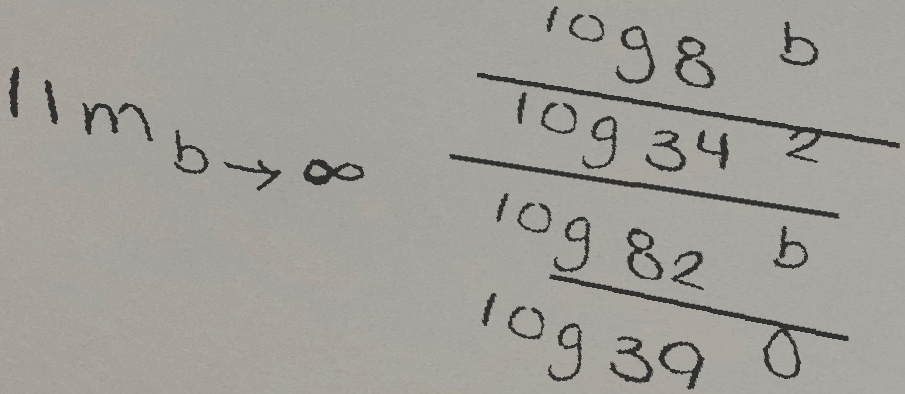 lim b→∞
log 8 b
log 34 2
log 82 b
log 39 0